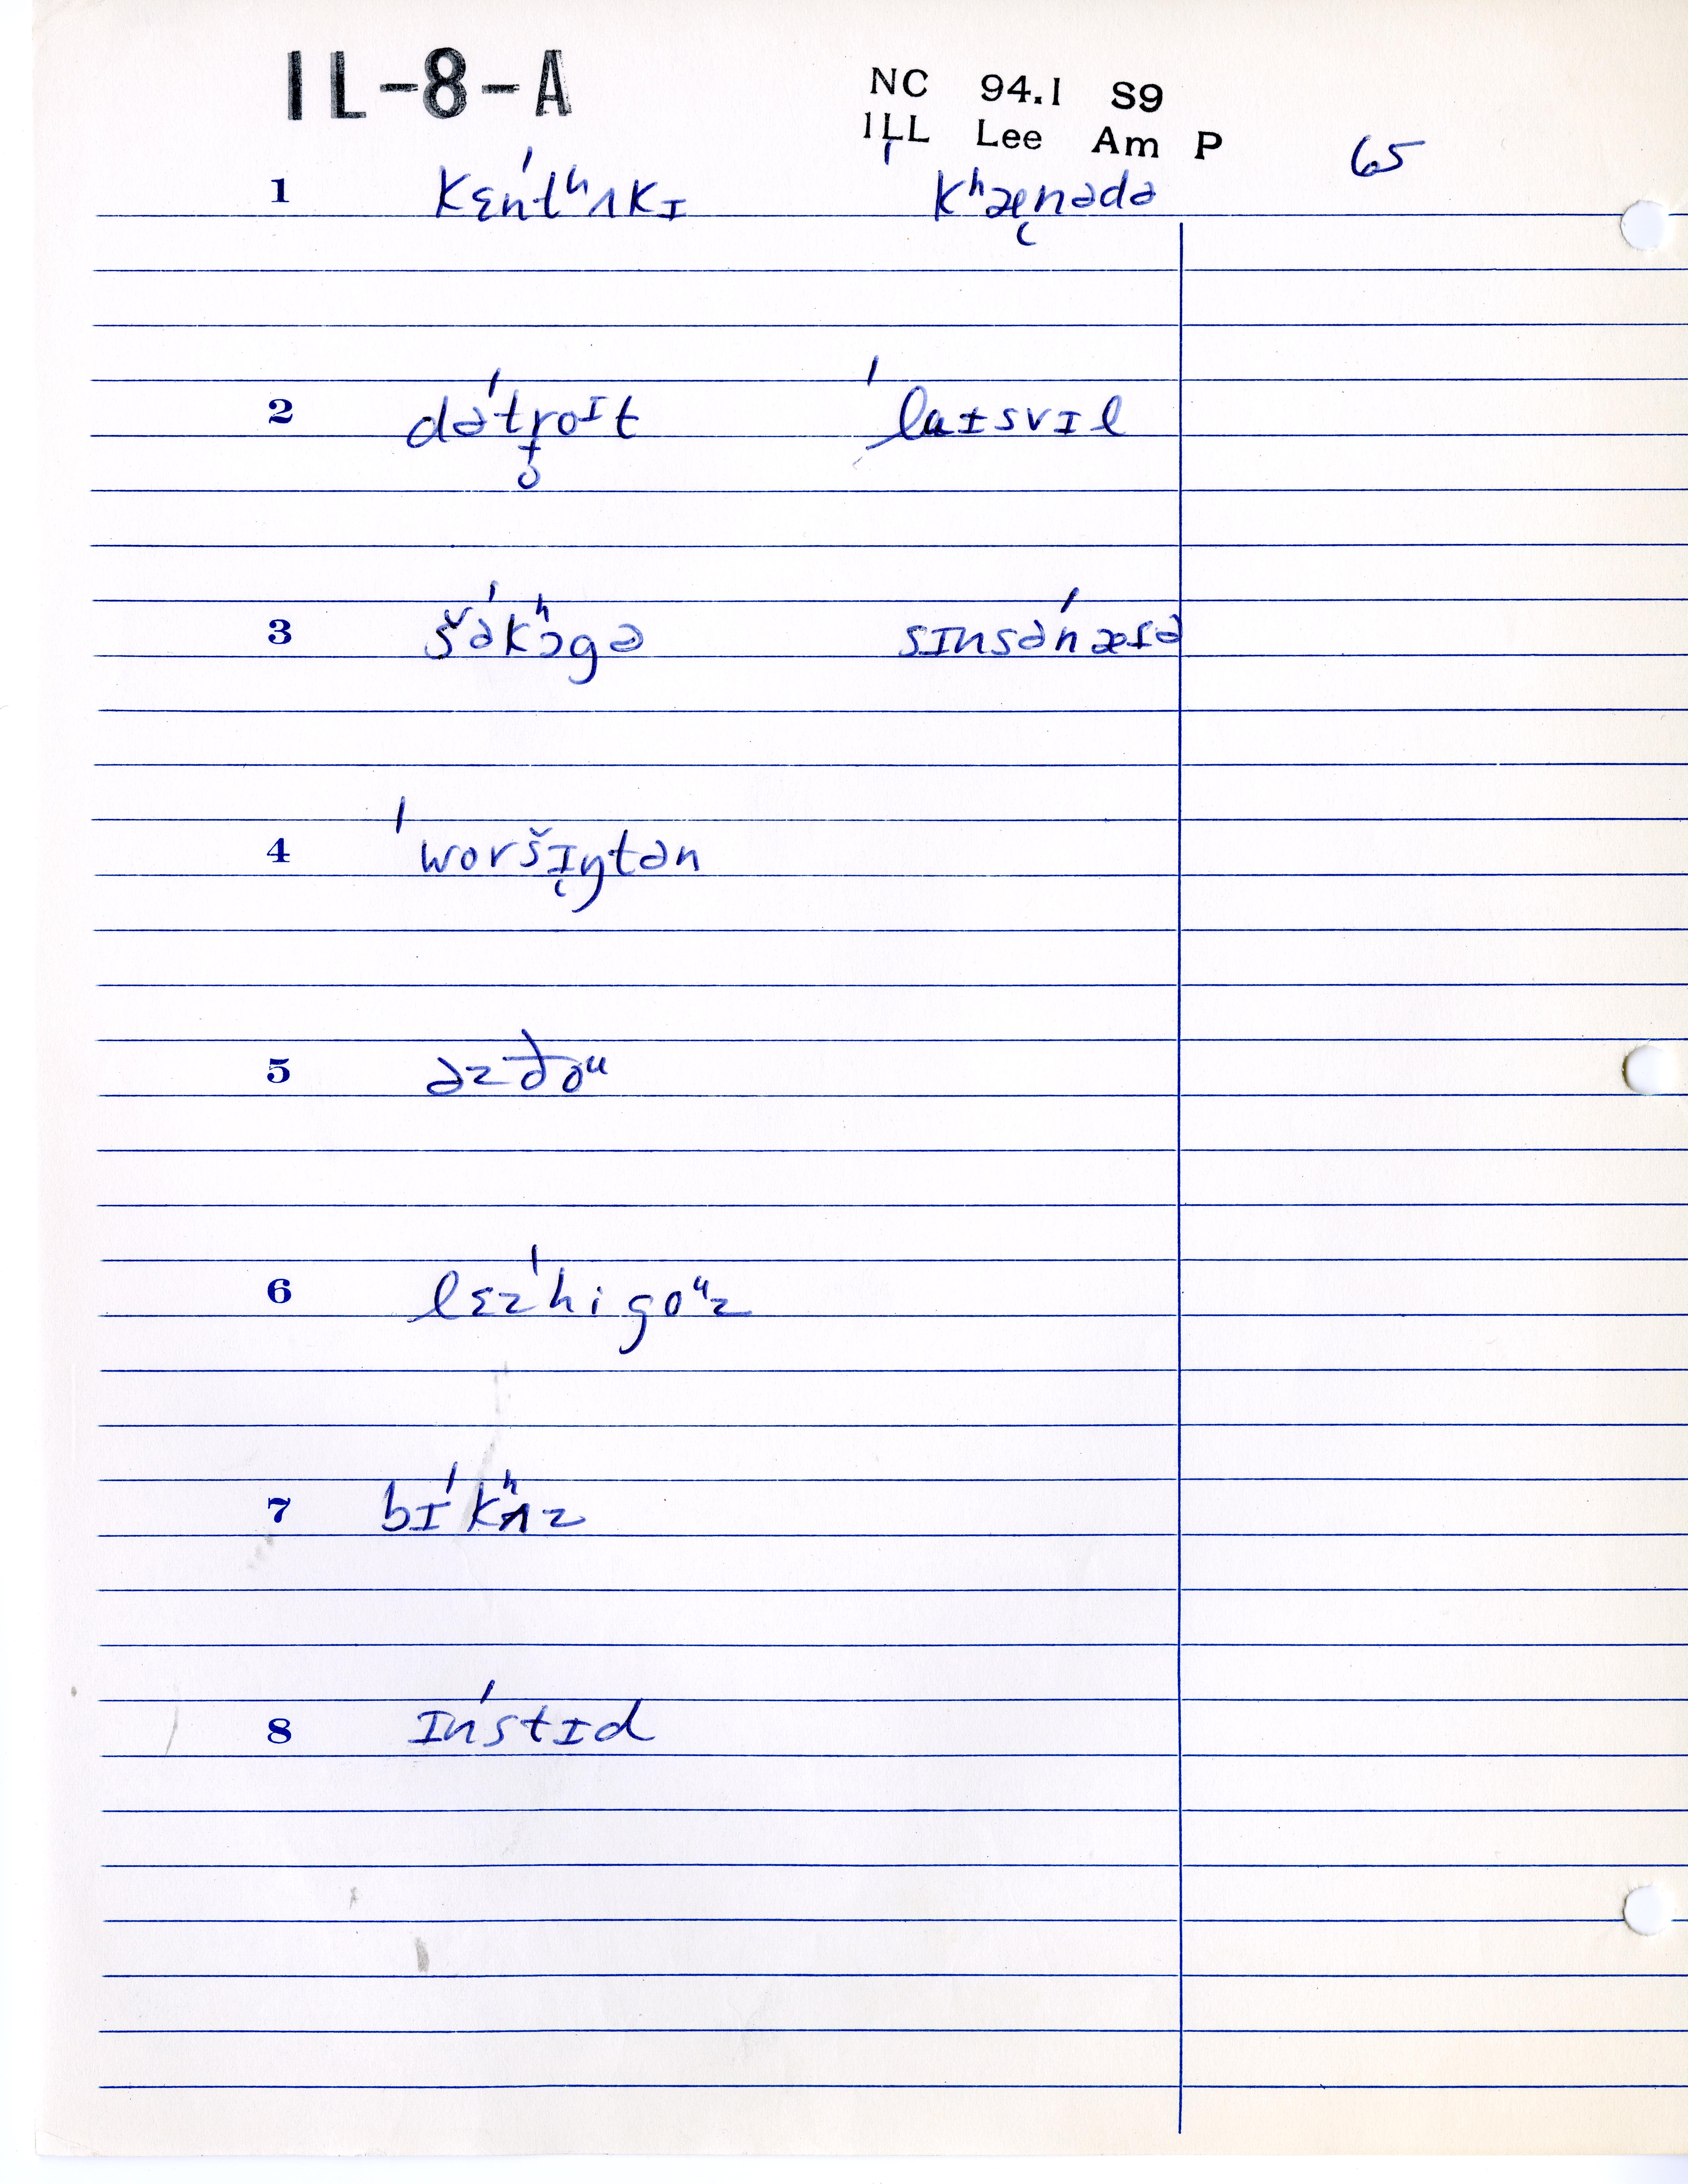 IL-8-A
NC 94.1 S9
ILL Lee Am P
65
1 kɛn'tʰʌkɪ 'kʰæ̨nədə
2 də'tr̥oᴵt 'laɪsvɪl
3 šə'kʰɔgə sɪnsə'næɪə
4 'woršɪ̨ŋtən
5 əzđoᵘ
6 lɛz'higoᵘz
7 bɪ'kʰʌz
8 ɪn'stɪd